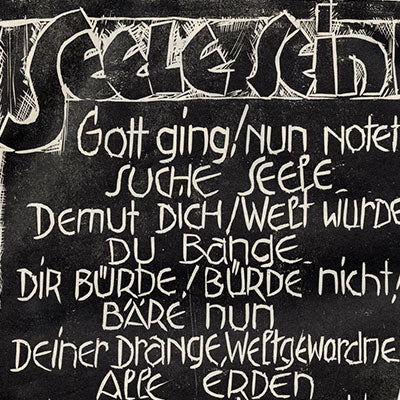 SEELE SEIN
Gott ging! Nun Notet
SUCHE SEELE
Demut DICH! Welt wurde
DU BANGE
DIR BÜRDE! BÜRDE nicht!
BÄRE NUN
Deiner DRANGE, Weltgewordne
ALLE ERDEN